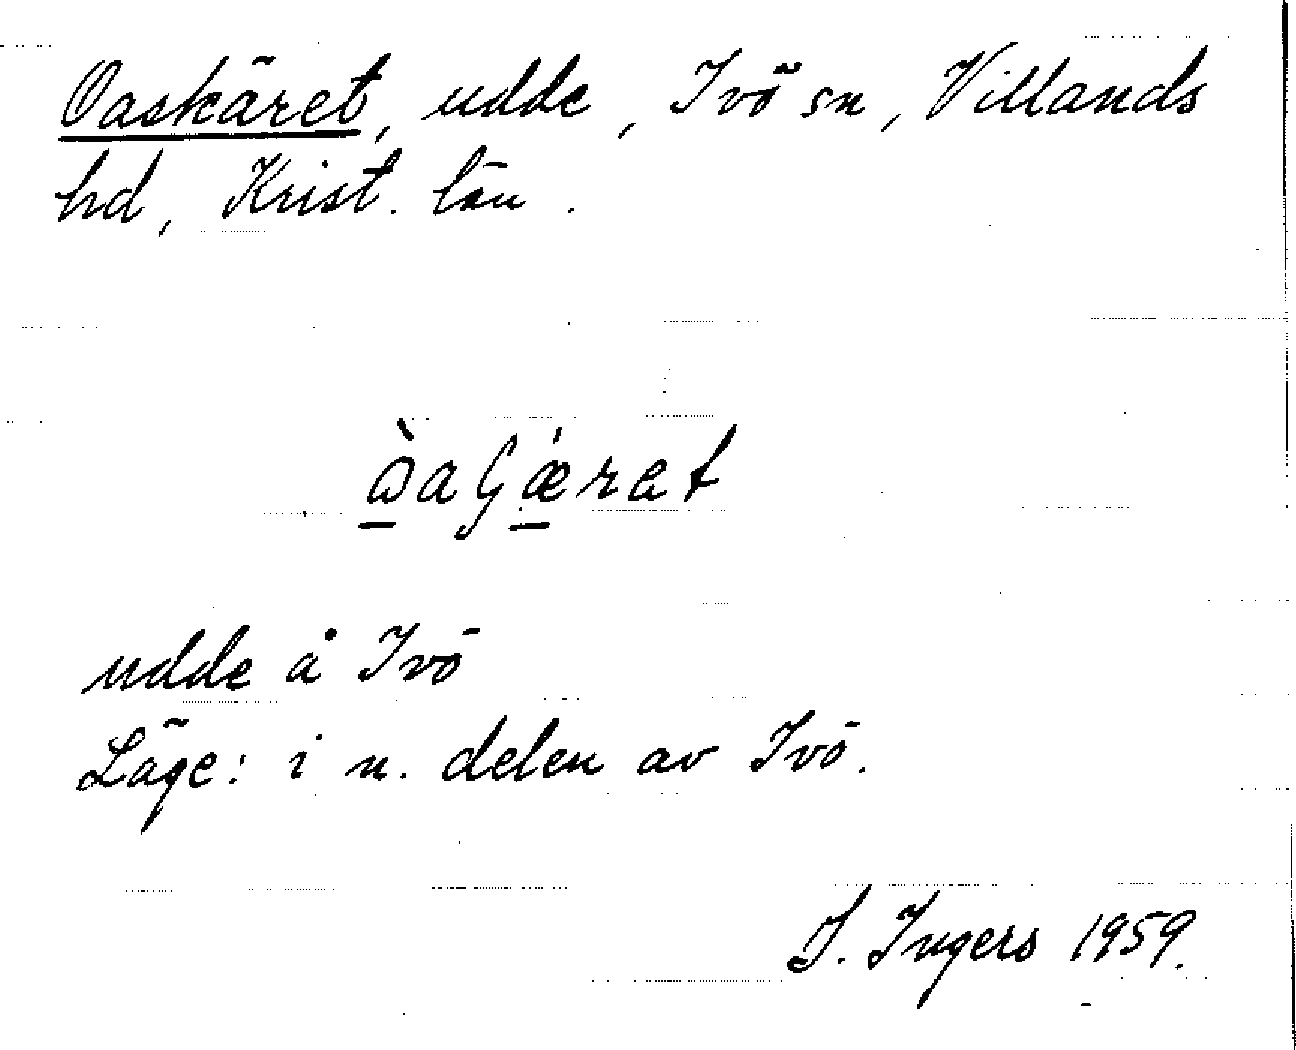 Oaskäret, udde, Ivö sn, Villands
hd, Krist. län.
udde å Ivö
Läge: i n. delen av Ivö.
I. Ingers 1959.